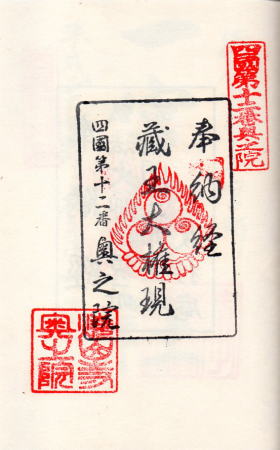 四國第十二番奧之院
奉納経
藏王大権現
四國第十二番 奧之院
燒山寺
奧之院